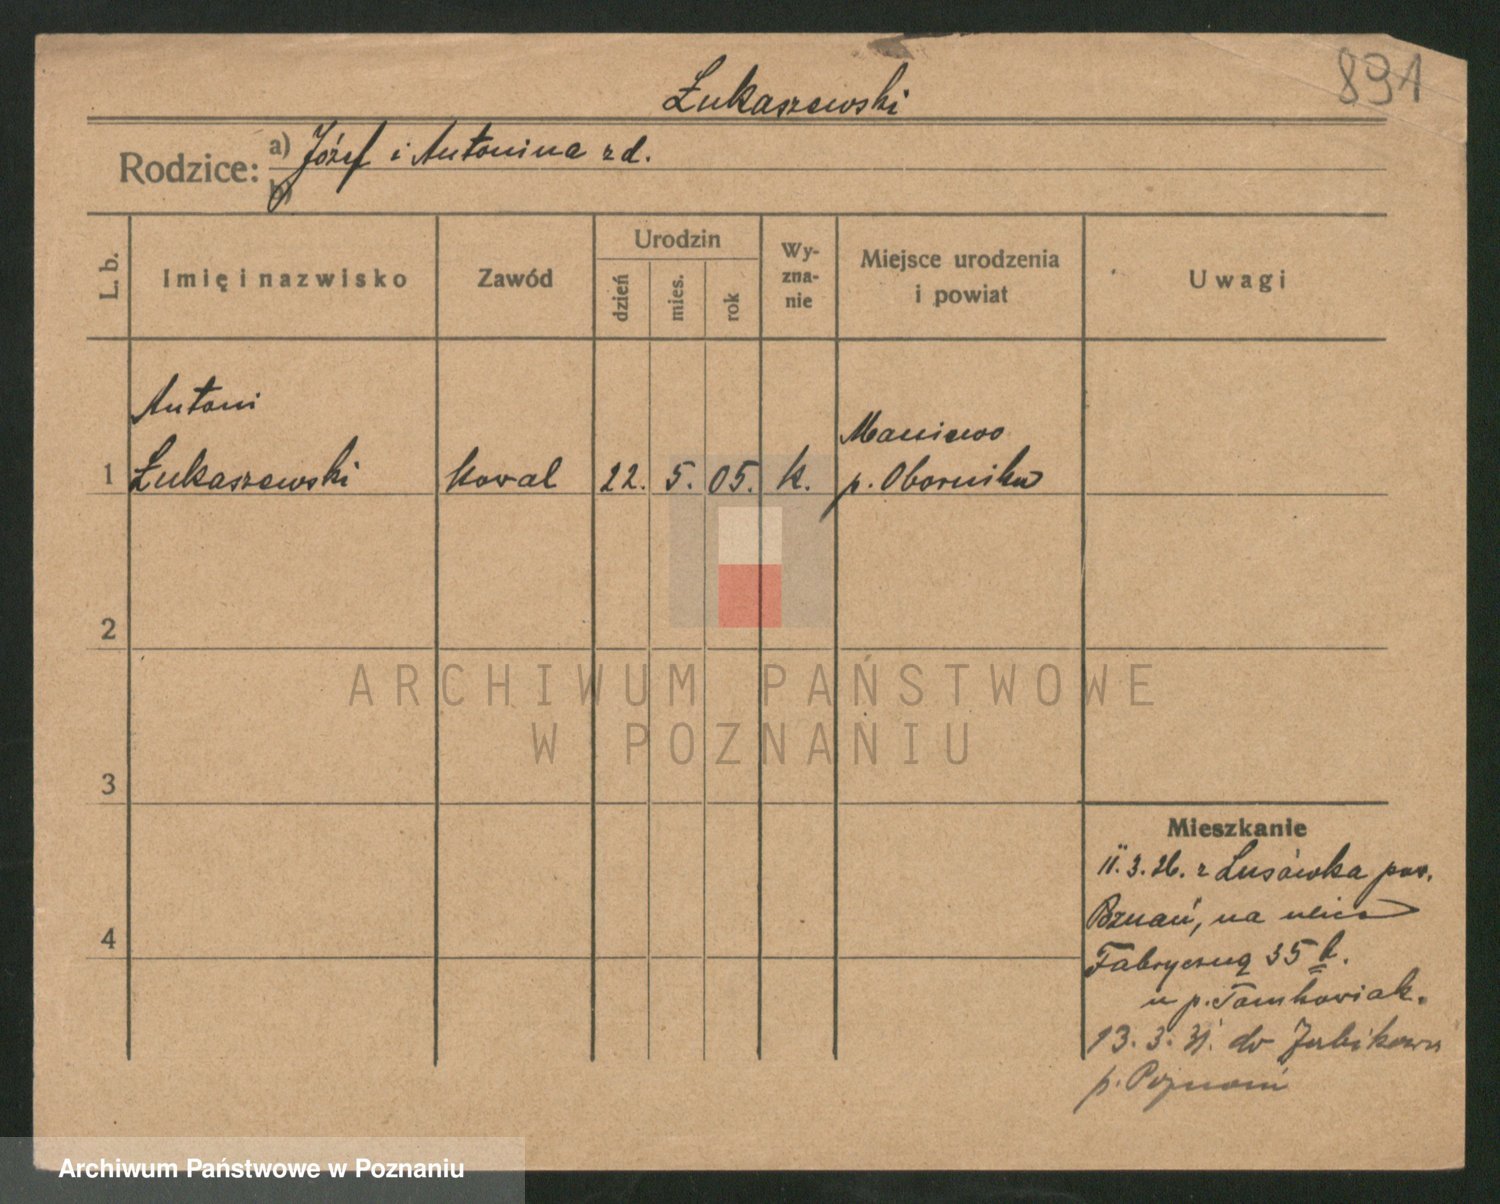 891
Łukaszewski
Rodzice: a) Józef i Antonina zd.
b)
L. b.
Imię i nazwisko
Zawód
Urodzin
dzień
mies.
rok
Wy-
zna-
nie
Miejsce urodzenia
i powiat
Uwagi
Antoni
1 Łukaszewski kowal 22. 5. 05. k.
Maniewo
p. Oborniki
2
3
4
Mieszkanie
11.3.26. z Lusówka pow.
Poznań, na ulicę
Fabryczną 35
u p. Tomkowiak.
13. 3. 31. do Żabikowa
p. Poznań
ARCHIWUM PAŃSTWOWE
W POZNANIU
Archiwum Państwowe w Poznaniu